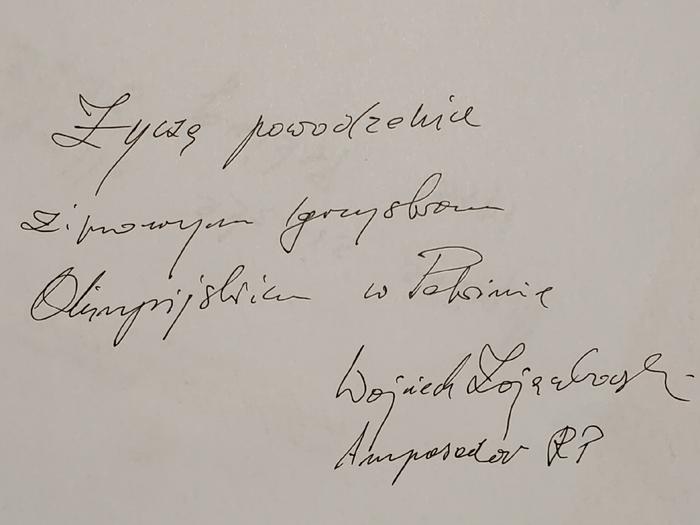 Życzę powodzenia
zimowym Igrzyskom
Olimpijskim w Pekinie
Wojciech
Ambasador RP